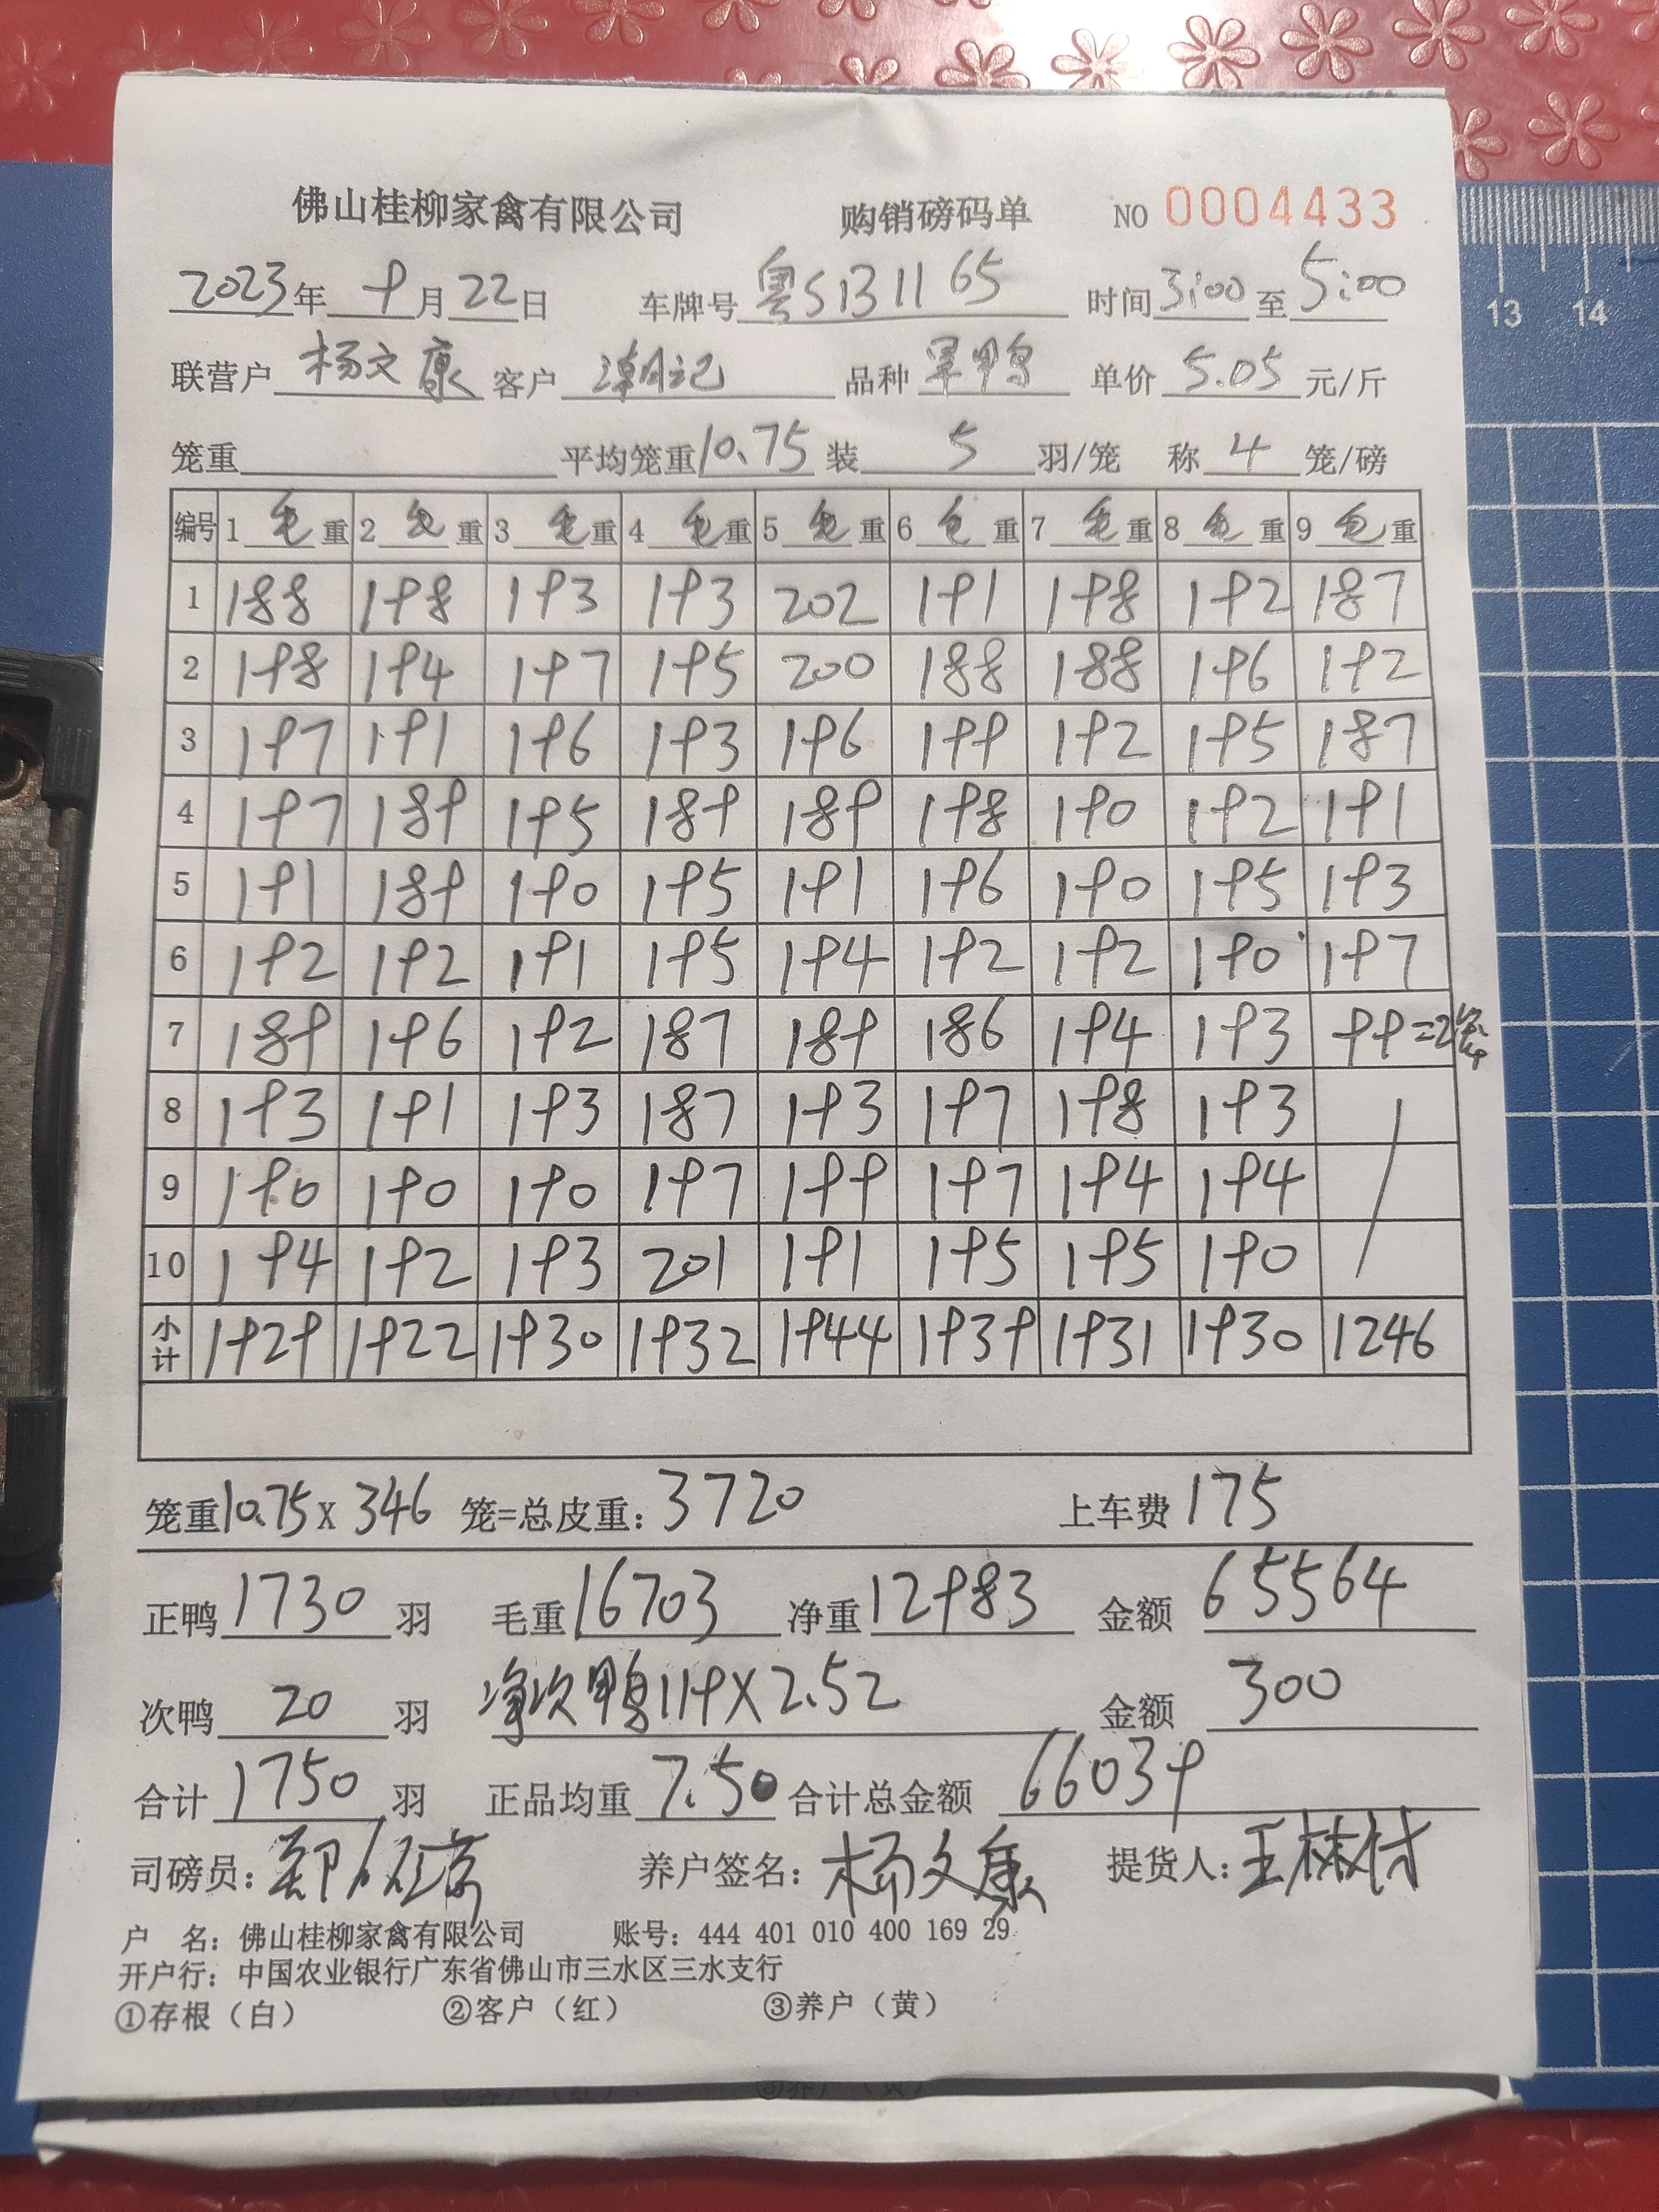 佛山桂柳家禽有限公司 购销磅码单 NO 0004433
2023年 9月22日 车牌号 粤S1311 65 时间 3:00 至 5:00
联营户 杨文康 客户 潮记 品种 旱鸭 单价 5.05 元/斤
笼重 平均笼重 10.75 装 5 羽/笼 称 4 笼/磅
编号 1 毛重 2 毛重 3 毛重 4 毛重 5 毛重 6 毛重 7 毛重 8 毛重 9 毛重
1 188 198 193 193 202 191 198 192 187
2 198 194 197 195 200 188 188 196 192
3 197 191 196 193 196 199 192 195 187
4 197 189 195 189 189 198 190 192 191
5 191 189 190 195 191 196 190 195 193
6 192 192 191 195 194 192 192 190 197
7 189 196 192 187 189 186 194 193 99=2笼
8 193 191 193 187 193 197 198 193
9 190 190 190 197 199 197 194 194
10 194 192 193 201 191 195 195 190
小计 1929 1922 1930 1932 1944 1939 1931 1930 1246
笼重10.75x 346 笼=总皮重: 3720 上车费 175
正鸭 1730 羽 毛重 16703 净重 12983 金额 65564
次鸭 20 羽 净次鸭119X2.52 金额 300
合计 1750 羽 正品均重 7.50 合计总金额 66039
司磅员: 养户签名: 杨文康 提货人:
户 名: 佛山桂柳家禽有限公司 账号: 444 401 010 400 169 29
开户行: 中国农业银行广东省佛山市三水区三水支行
①存根（白） ②客户（红） ③养户（黄）
13 14